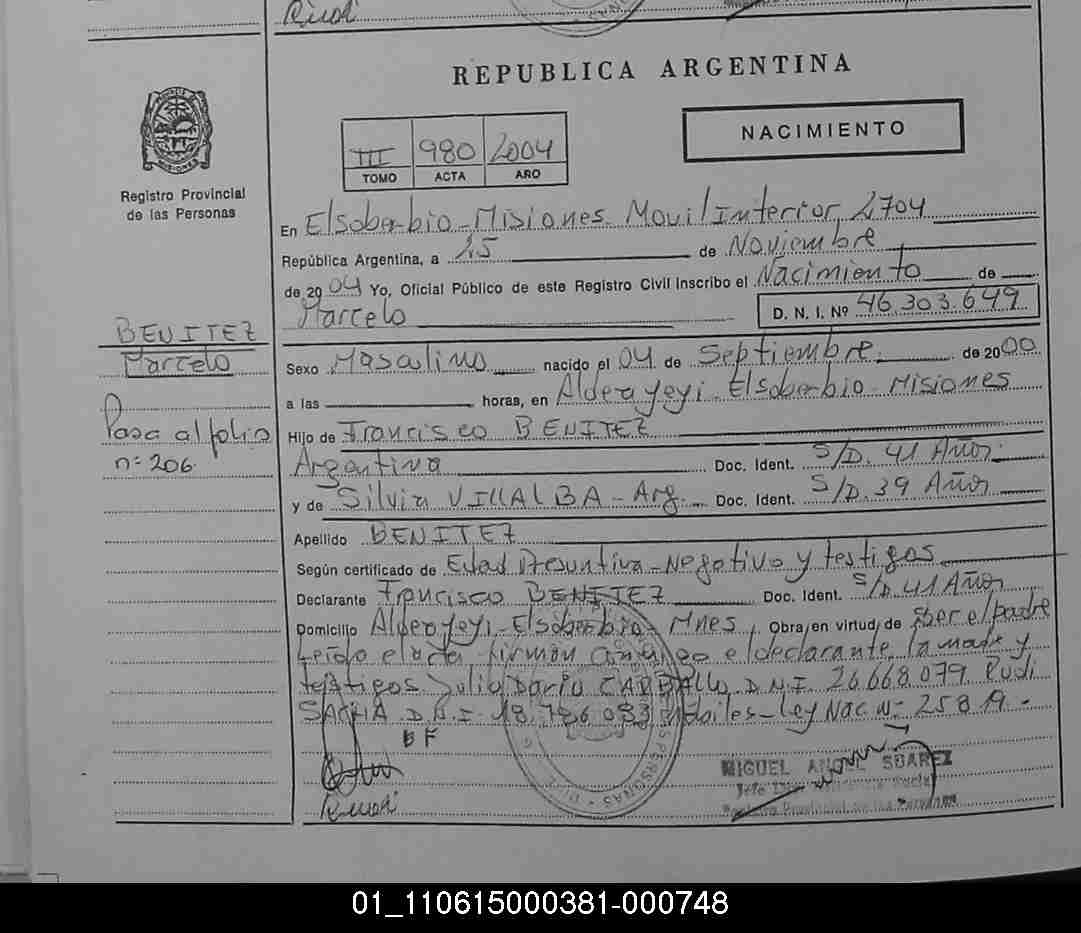 Rudi
REPUBLICA ARGENTINA
NACIMIENTO
III 980 2004
TOMO ACTA AÑO
Registro Provincial
de las Personas
En Elsoberbio - Misiones. Movil Interior 2704
República Argentina, a 25 de Noviembre
de 2004 Yo, Oficial Público de este Registro Civil Inscribo el Nacimiento de
Marcelo D. N. I. Nº 46.303.649
BENITEZ
Marcelo
Sexo Masculino nacido el 04 de Septiembre de 2000
a las horas, en Aldea yeyi. Elsoberbio - Misiones
Pasa al folio
n: 206.
Hijo de Francisco BENITEZ
Argentina Doc. Ident. S/D. 41 Años
y de Silvia VILLALBA - Arg. Doc. Ident. S/D. 39 Años
Apellido BENITEZ
Según certificado de Edad Presuntiva - Negativo y testigos
Declarante Francisco BENITEZ Doc. Ident. S/D. 41 Años
Domicilio Aldea yeyi - Elsoberbio - Mnes Obra en virtud de ser el padre
Leido el acta, firman conmigo el declarante, la madre y
testigos Julio Dario D.N.I. 26.668.079 Rudi
D.N.I. 18.786.083 Ley Nac Nº 25819.-
B F
Rudi
MIGUEL ANGEL SUAREZ
Registro Provincial de las Personas
01_110615000381-000748